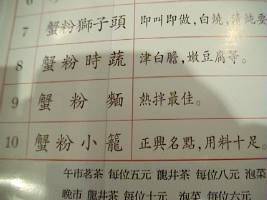 7 蟹粉獅子頭 即叫即做,白燒,
8 蟹粉時蔬 津白膽,嫩豆腐等。
9 蟹粉麵 熱拌最佳。
10 蟹粉小籠 正興名點,用料十足。
午市茗茶 每位五元 龍井茶 每位八元 泡菜
晚市 龍井茶 每位十元 泡菜 每位六元